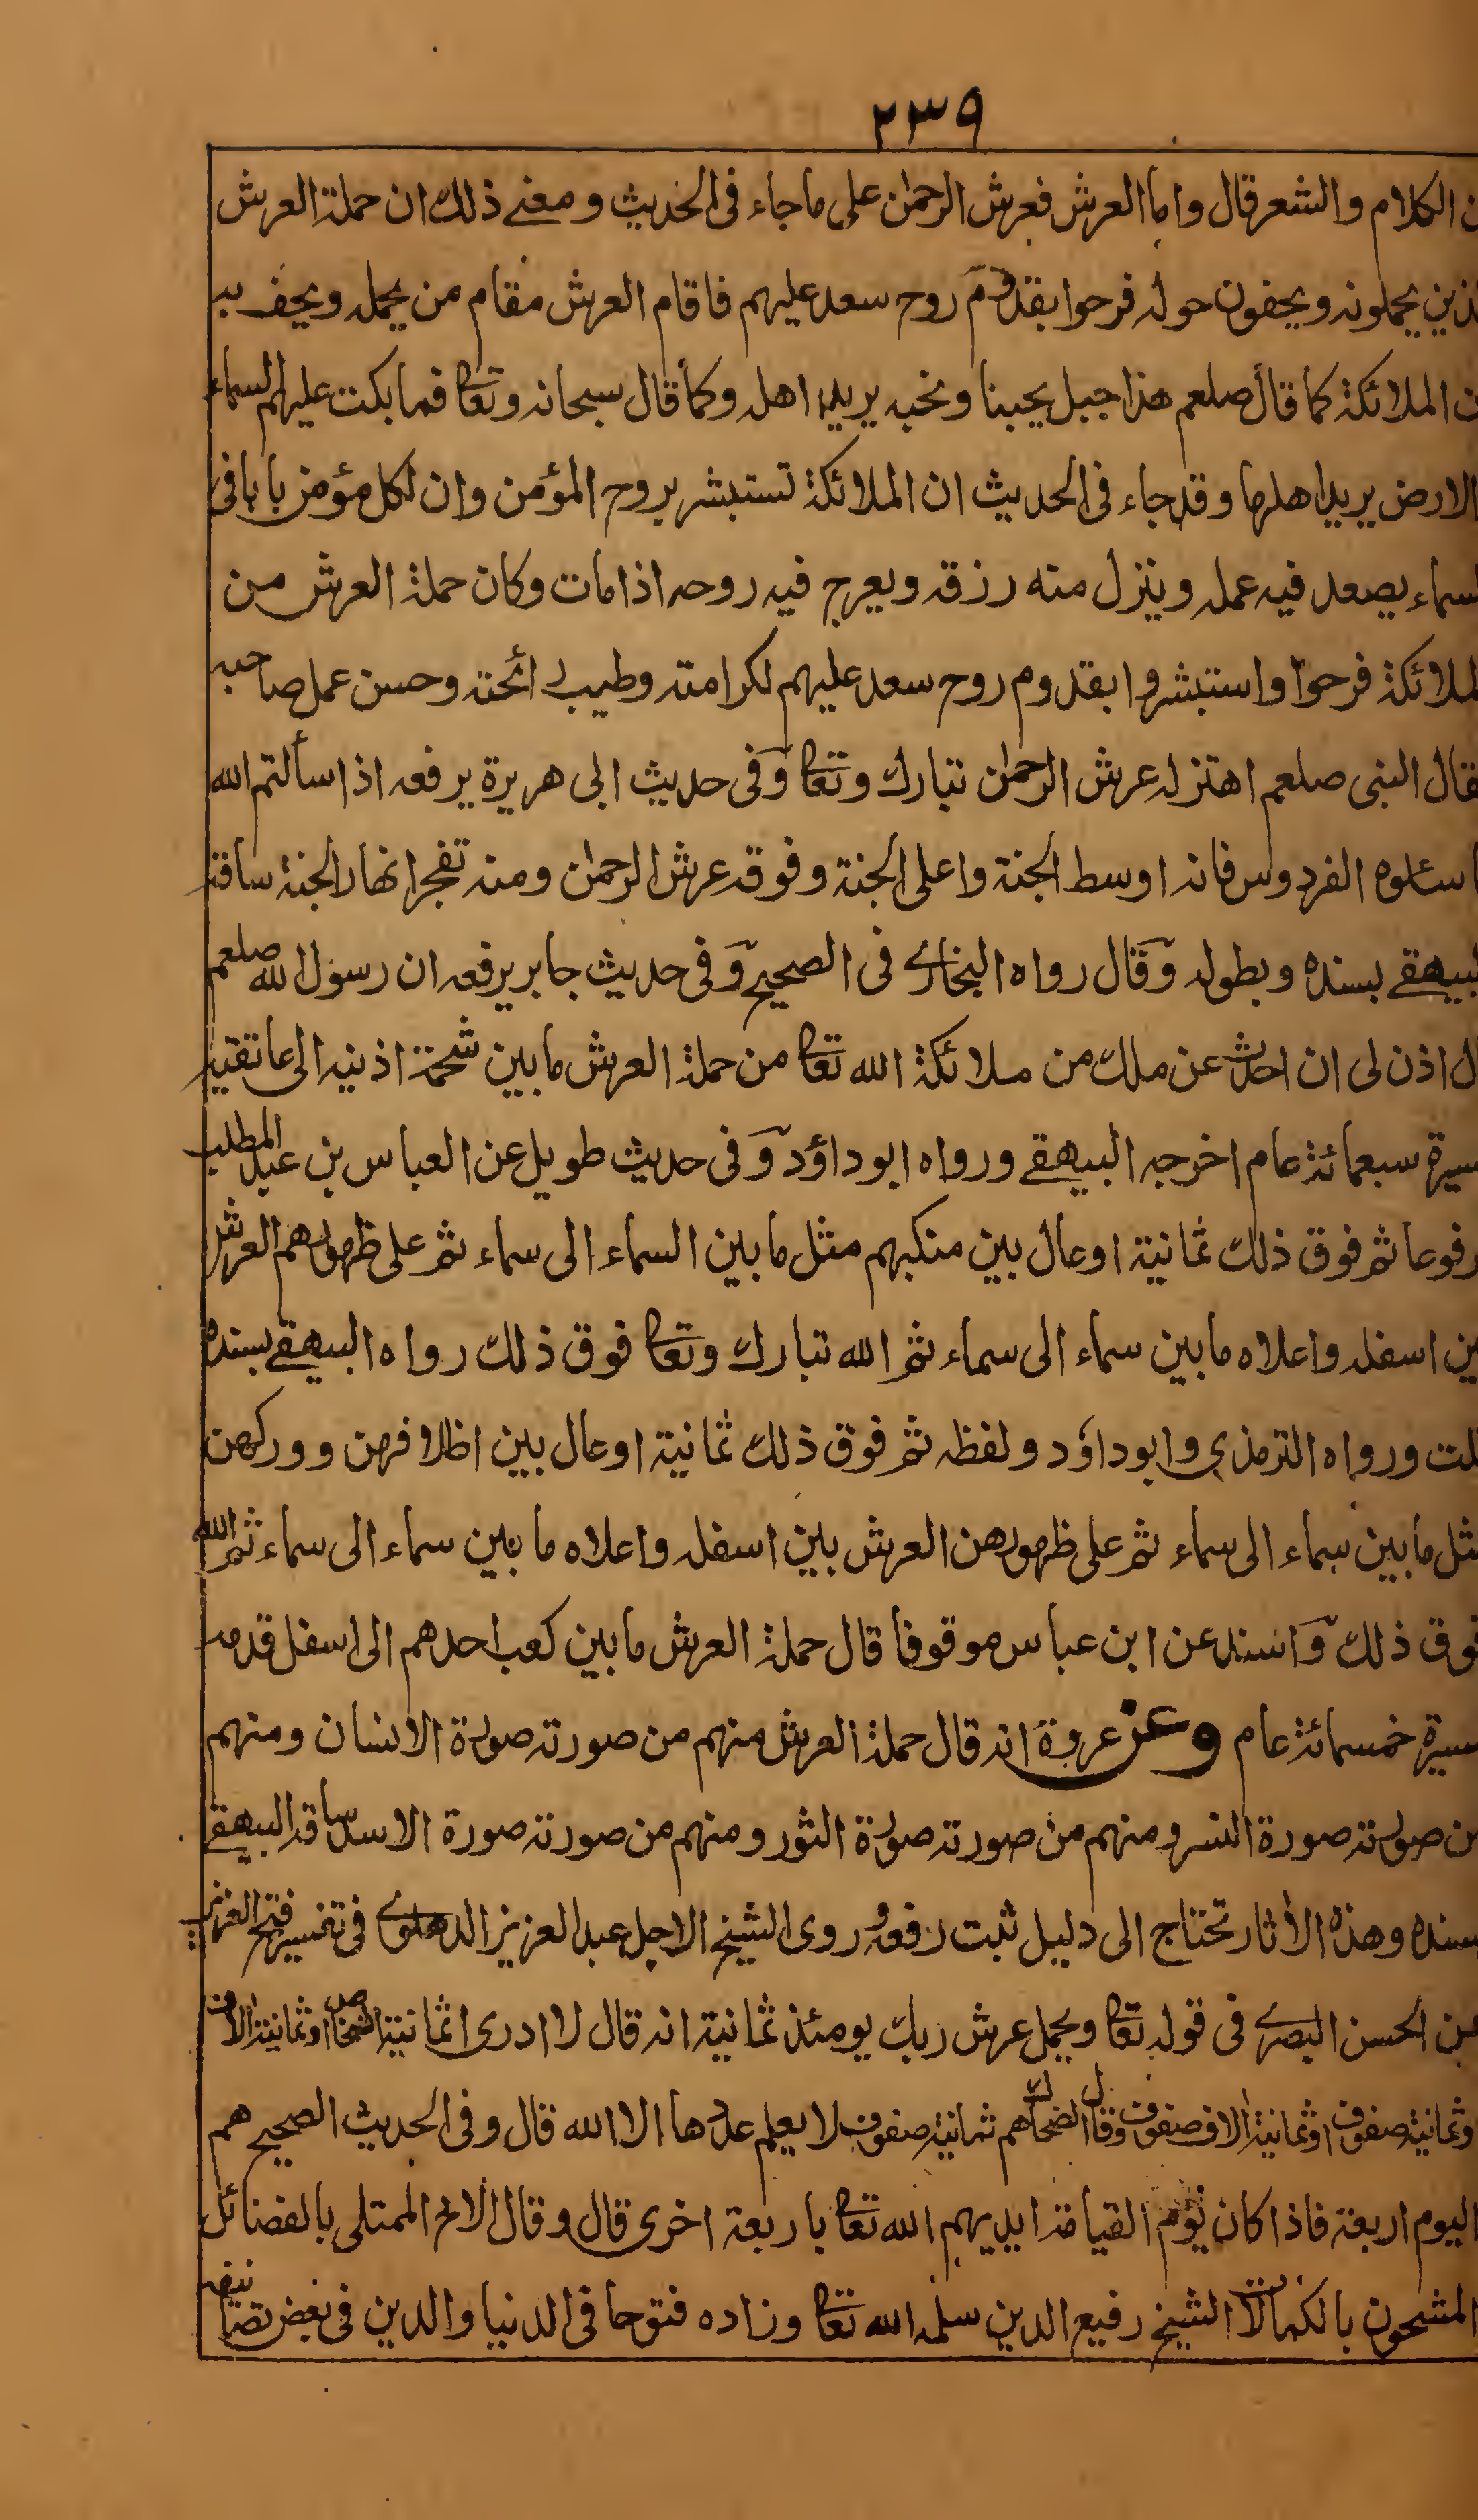 ٢٣٩
ن الكلام والشعر قال واما العرش فعرش الرحمن على ما جاء فى الحديث ومعنے ذلك ان حملة العرش
لذين يحملونه ويحفون حوله فرحوا بقدوم روح سعد عليهم فاقام العرش مقام من يحمله ويحف به
ن الملائكة كما قال صلعم هذا جبل يحبنا ونحبه يريد اهله وكما قال سبحانه وتعا فما بكت عليهم السماء
الارض يريد اهلها وقد جاء فى الحديث ان الملائكة تستبشر بروح المؤمن وان لكل مؤمن بابا فى
لسماء يصعد فيه عمله وينزل منه رزقه ويعرج فيه روحه اذا مات وكان حملة العرش من
لملائكة فرحوا واستبشروا بقدوم روح سعد عليهم لكرامته وطيب رائحته وحسن عمل صاحبه
فقال النبى صلعم اهتز له عرش الرحمن تبارك وتعا وفى حديث ابى هريرة يرفعه اذا سألتم الله
اسئلوه الفردوس فانه اوسط الجنة واعلى الجنة وفوقه عرش الرحمن ومنه تفجر انهار الجنة ساقه
لبيهقے بسنده وبطوله وقال رواه البخارے فى الصحيح وفى حديث جابر يرفعه ان رسول الله صلعم
ل اذن لى ان احدث عن ملك من ملائكة الله تعا من حملة العرش ما بين شحمة اذنيه الى عاتقيه
سيرة سبعمائة عام اخرجه البيهقے ورواه ابوداؤد وفى حديث طويل عن العباس بن عبد المطلب
رفوعا ثم فوق ذلك ثمانية اوعال بين منكبهم مثل ما بين السماء الى سماء ثم على ظهورهم العرش
ين اسفله واعلاه ما بين سماء الى سماء ثم الله تبارك وتعا فوق ذلك رواه البيهقے بسنده
لت ورواه الترمذي وابوداؤد ولفظه ثم فوق ذلك ثمانية اوعال بين اظلافهن ووركهن
ثل ما بين سماء الى سماء ثم على ظهورهن العرش بين اسفله واعلاه ما بين سماء الى سماء ثم الله
فوق ذلك واسند عن ابن عباس موقوفا قال حملة العرش ما بين كعب احدهم الى اسفل قدمه
سيرة خمسمائة عام وعن عروة انه قال حملة العرش منهم من صورته صورة الانسان ومنهم
من صورته صورة النسر ومنهم من صورته صورة الثور ومنهم من صورته صورة الاسد ساقه البيهقے
بسنده وهذه الأثار تحتاج الى دليل ثبت رفعه وروى الشيخ الاجل عبد العزيز الدهلوے فى تفسير فتح العزيز
عن الحسن البصرے فى قوله تعا ويحمل عرش ربك يومئذ ثمانية انه قال لا ادرى اثمانية اشخاص او ثمانية الاف
وثمانية صفوف او ثمانية الاف صفوف وقال الضحاك هم ثمانية صفوف لا يعلم عددها الا الله قال وفى الحديث الصحيح هم
اليوم اربعة فاذا كان يوم القيامة ايديهم الله تعا باربعة اخرى قال وقال الاخ الممتلى بالفضائل
المشحون بالكمالات الشيخ رفيع الدين سلمه الله تعا وزاده فتوحا فى الدنيا والدين فى بعض تصانيفه